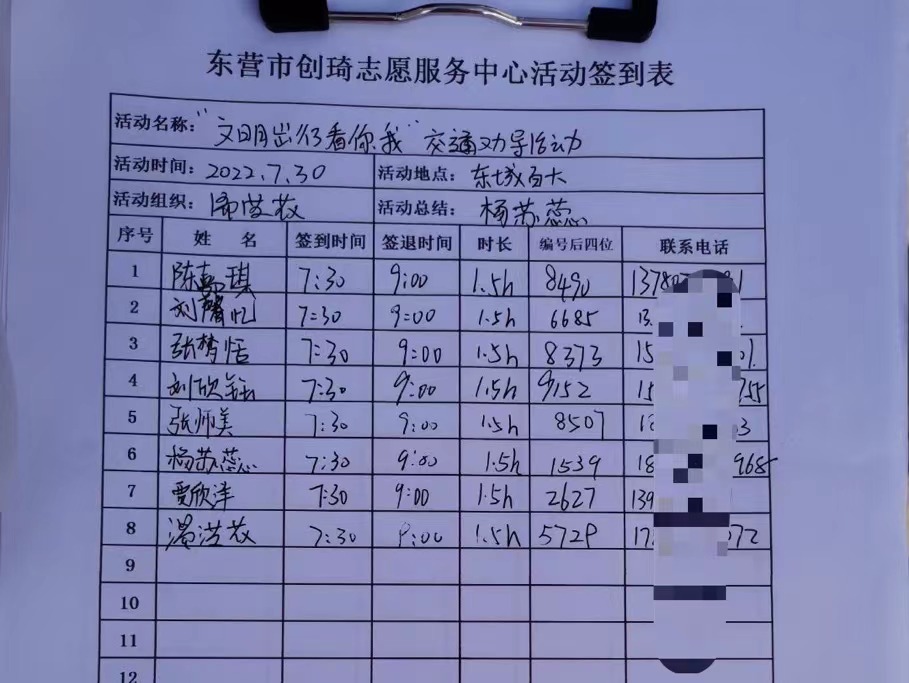 东营市创琦志愿服务中心活动签到表
活动名称：“文明出行看你我”交通劝导活动
活动时间：2022.7.30 活动地点：东城百大
活动组织： 活动总结：杨苏蕊
序号 姓名 签到时间 签退时间 时长 编号后四位 联系电话
1 陈 琪 7:30 9:00 1.5h 8490
2 刘馨忆 7:30 9:00 1.5h 6685
3 张梦恬 7:30 9:00 1.5h 8373
4 刘欣 7:30 9:00 1.5h 9152
5 张师美 7:30 9:00 1.5h 8507
6 杨苏蕊 7:30 9:00 1.5h 1539
7 贾欣泽 7:30 9:00 1.5h 2627 139
8 7:30 9:00 1.5h
9
10
11
12